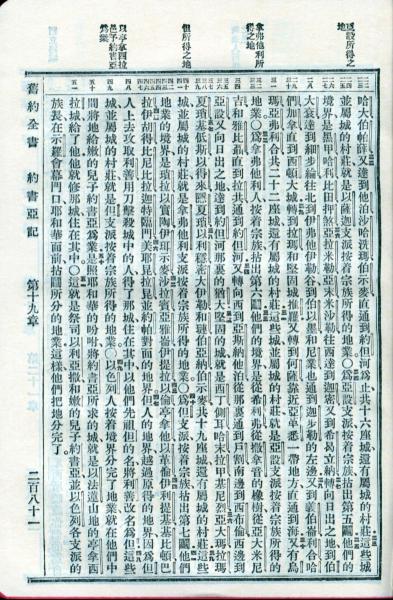 亞設所得之地
拿弗他利所得之地
但所得之地
以亭拿西拉邑予約書亞爲業
哈大伯帖薛又達到他泊沙哈洗瑪伯示麥直通到約但河爲止共十六座城還有屬城的村莊這些城
並屬城的村莊就是以薩迦支派按着宗族所得的地業○爲亞設支派按着宗族拈出第五鬮他們的
境界是黑甲哈利比田押煞亞拉米勒亞末米沙勒往西達到迦密又到希曷立納轉向日出之地到伯
大袞達到細步綸往北到伊弗他伊勒谷到伯以墨和尼業也通到迦步勒的左邊又到義伯崙利合哈
們加拿直到西頓大城轉到拉瑪和堅固城推羅又轉到何薩靠近亞革悉一帶地方直通到海又有烏
瑪亞弗利合共二十二座城還有屬城的村莊這些城並屬城的村莊就是亞設支派按着宗族所得的
地業○爲拿弗他利人按着宗族拈出第六鬮他們的境界是從希利弗從撒拿音的橡樹從亞大米尼
吉和雅比聶直到拉共通到約但河又轉向西到亞斯納他泊從那裏通到戶割南邊到西布倫西邊到
亞設又向日出之地達到約但河那裏的猶大堅固的城就是西丁側耳哈末拉甲基尼烈亞大瑪拉瑪
夏瑣基低斯以得來隱夏瑣以利穩密大伊勒和璉伯亞納伯示麥共十九座城還有屬城的村莊這些
城並屬城的村莊就是拿弗他利支派按着宗族所得的地業○爲但支派按着宗族拈出第七鬮他們
地業的境界是瑣拉以實陶伊珥示麥沙拉賓亞雅崙伊提拉以倫亭拿他以革倫伊利提基基比頓巴
拉伊胡得比尼比拉迦特臨門美耶昆拉昆並約帕對面的地界但人的地界越過原得的地界因爲但
人上去攻取利善用刀擊殺城中的人得了那城住在其中以他們先祖但的名將利善改名爲但這些
城並屬城的村莊就是但支派按着宗族所得的地業○以色列人按着境界分完了地業就在他們中
間將地給嫩的兒子約書亞爲業是照耶和華的吩咐將約書亞所求的城就是以法蓮山地的亭拿西
拉城給了他他就修那城住在其中○這就是祭司以利亞撒和嫩的兒子約書亞並以色列各支派的
族長在示羅會幕門口耶和華面前拈鬮所分的地業這樣他們把地分完了
舊約全書 約書亞記 第十九章 二百八十一